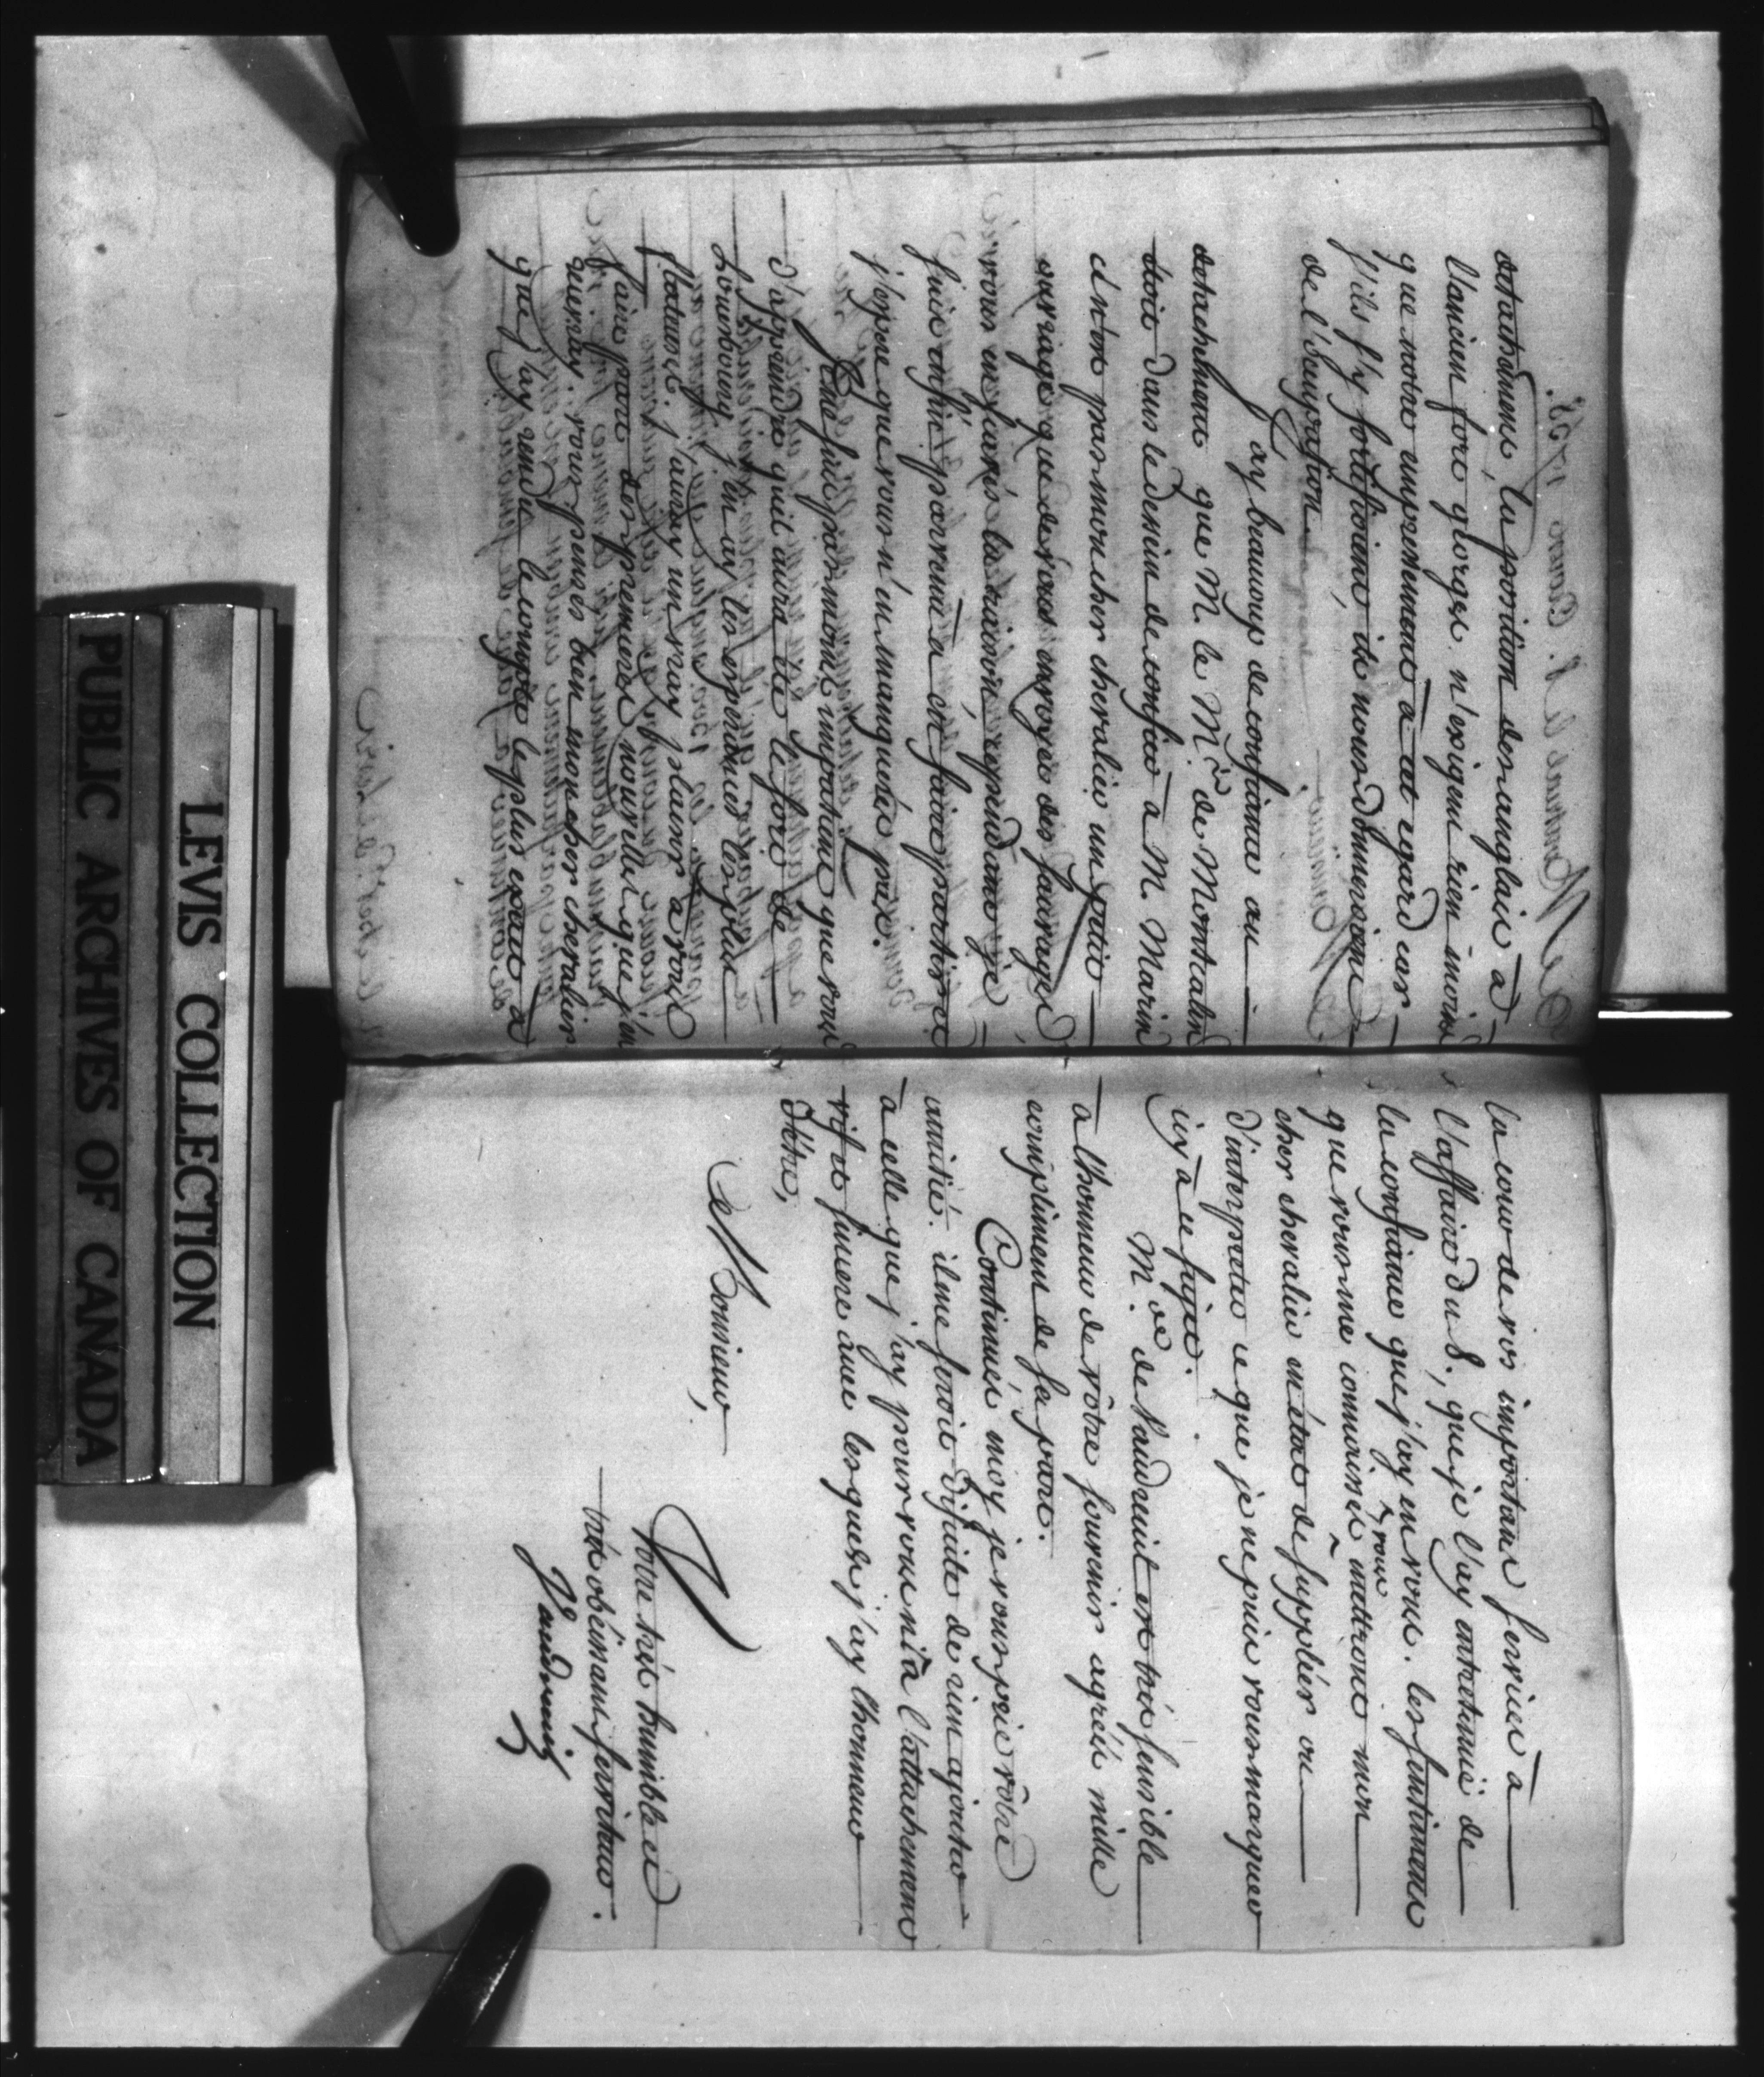 detachemens, la position des anglais à
l'ancien fort george n'exigeni rien moins
que notre empressement à cet egard car
s'ils s'y fortifioient, ils nous donneroient
de l'occupation.
J'ay beaucoup de confiance au
detachement que M. le M.is de Montcalm
étoit dans le dessein de confier à M. Marin
ce n'est pas mon cher chevalier un petit
ouvrage que de vous envoyer des sauvages,
vous en savés la raison, cependant je
suis enfin parvenu à en faire partir et
j'espere que vous n'en manquerés pas.
Je ne suis pas moins impatient que vous
d'apprendre quel aura été le sort de
Louisbourg j'en ay les esperances les plus
flatteuses. j'auray un vray plaisir à vous
faire part des premieres nouvelles que j'en
recevray. vous pensés bien mon cher chevalier
que j'ay rendu le compte le plus exact à
la cour de vos importans services à
l'affaire du 8., que je l'ay entretenüe de
la confiance que j'ay en vous. les sentimens
que vous me connoissés vous mettront mon
cher chevalier en état de suppléer ou
d'interpreter ce que je ne puis vous marquer
icy à ce sujet.
M.de de Vaudreuil est très sensible
à l'honneur de vôtre souvenir agréés mille
complimens de sa part.
Continués, moy je vous prie vôtre
amitié. il me seroit dificile de rien ajouter
à celle que j'ay pour vous ni à l'attachement
vif et sincere avec lesquels j'ay l'honneur
d'être,
Monsieur,
Votre très humble et
très obéissant serviteur.
Vaudreuil
LEVIS COLLECTION
PUBLIC ARCHIVES OF CANADA